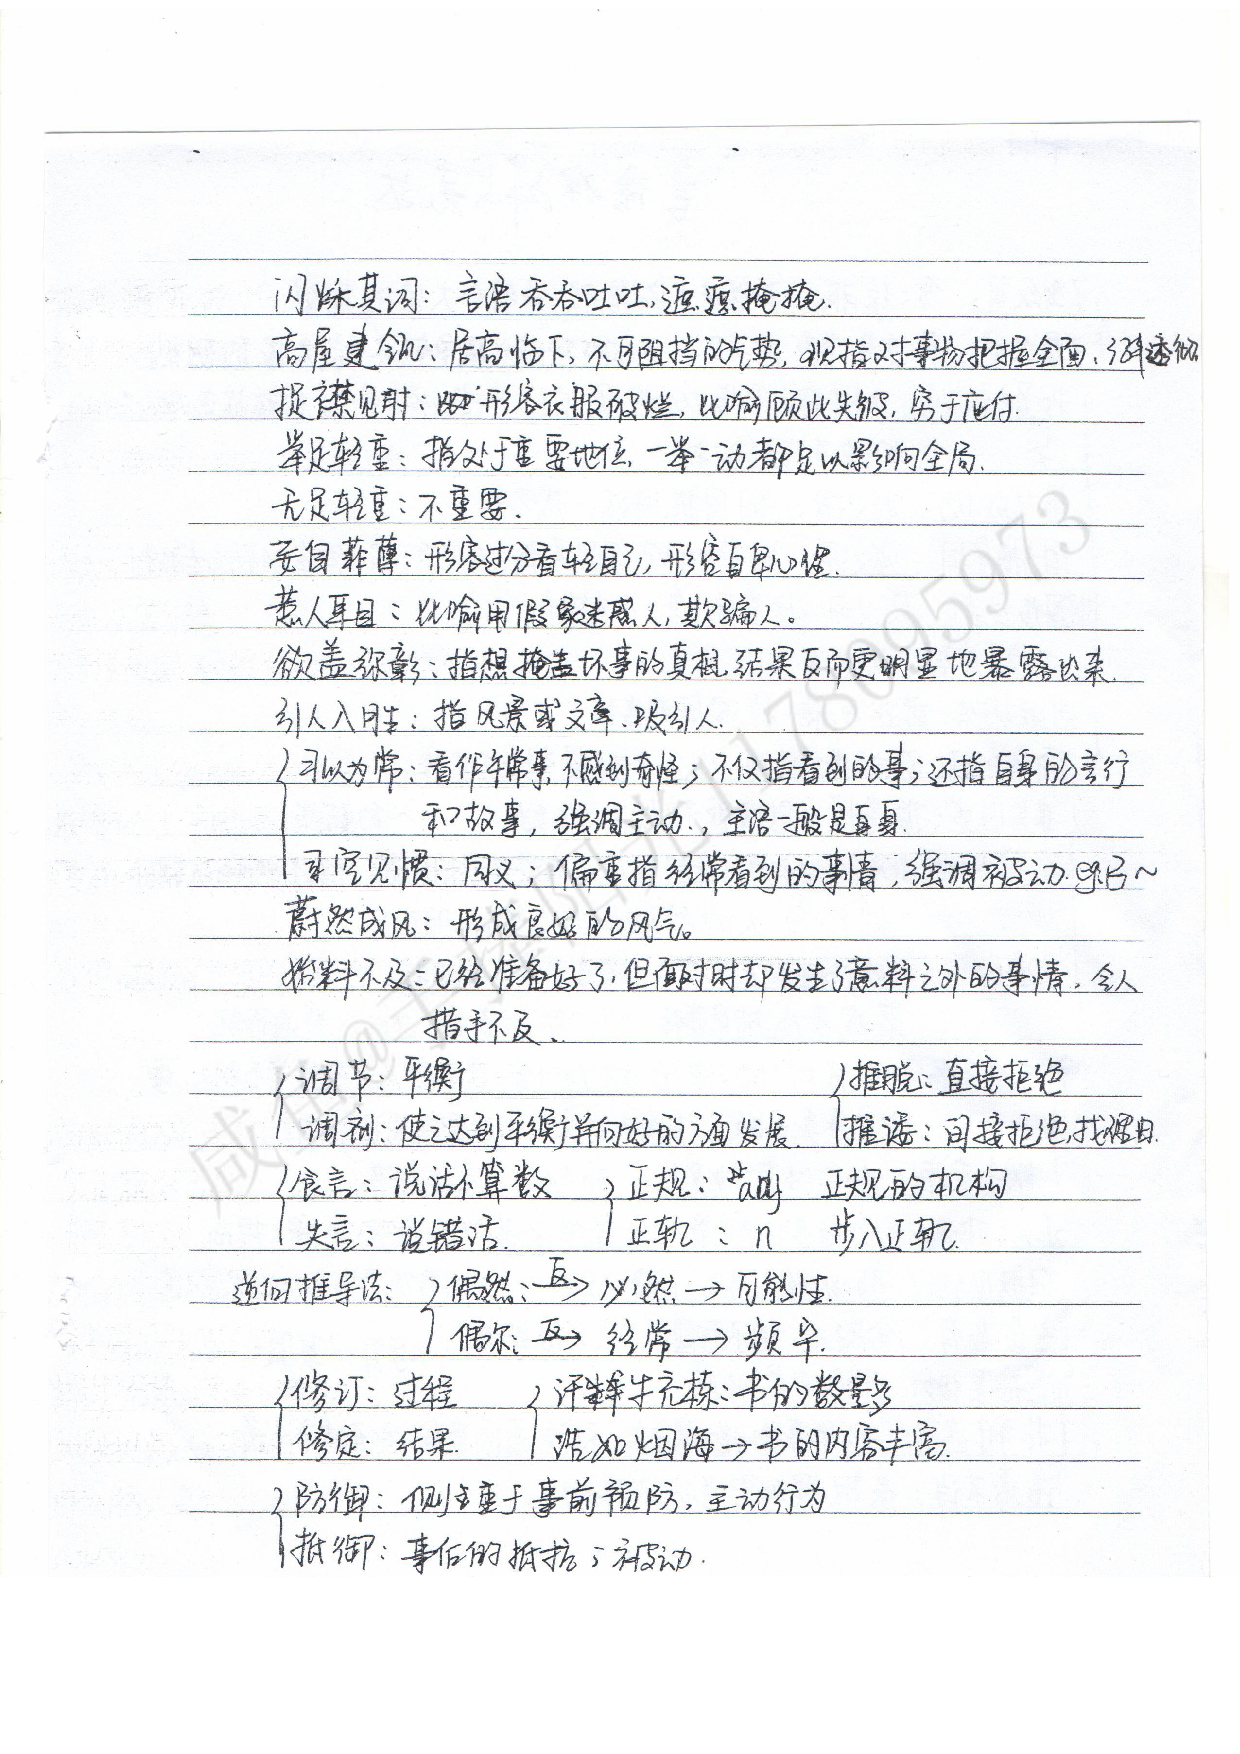 闪烁其词：言语吞吞吐吐，遮遮掩掩.
高屋建瓴：居高临下，不可阻挡的气势，现指对事物把握全面，了解透彻
捉襟见肘：形容衣服破烂，比喻顾此失彼，穷于应付.
举足轻重：指处于重要地位，一举一动都足以影响全局.
无足轻重：不重要.
妄自菲薄：形容过分看轻自己，形容自卑心理.
惑人耳目：比喻用假象迷惑人，欺骗人。
欲盖弥彰：指想掩盖坏事的真相，结果反而更明显地暴露出来.
引人入胜：指风景或文章.吸引人.
习以为常：看作平常事，不感到奇怪；不仅指看到的事；还指自身的言行
和故事，强调主动.，主语一般是自身.
司空见惯：同义；偏重指经常看到的事情，强调被动.
蔚然成风：形成良好的风气。
始料不及：已经准备好了，但面对时却发生了意料之外的事情，令人
措手不及.
调节：平衡
推脱：直接拒绝
调剂：使之达到平衡并向好的方面发展.
推诿：间接拒绝，找理由.
食言：说话不算数
正规：adj 正规的机构
失言：说错话.
正轨：n 步入正轨.
逆向推导法：偶然：反→必然→可能性.
偶尔：反→经常→频率.
修订：过程
汗牛充栋：书的数量多
修定：结果.
浩如烟海→书的内容丰富.
防御：侧重于事前预防，主动行为
抵御：事后的抵抗；被动.
咸鱼@手捧阳光1178095973